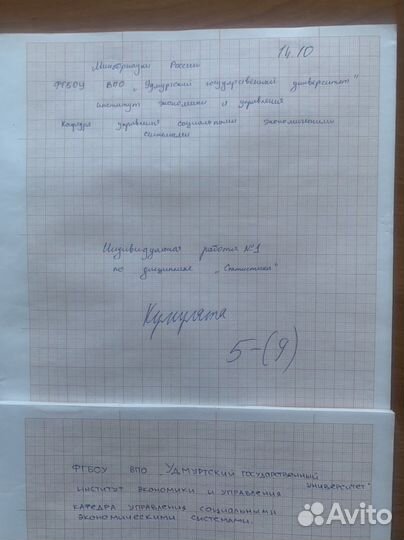 14.10
Минобрнауки России
ФГБОУ ВПО "Удмуртский государственный университет"
Институт экономики и управления
Кафедра управления социальными экономическими
системами
Индивидуальная работа №1
по дисциплине "Статистика"
Кумулята
5-(9)
ФГБОУ ВПО УДМУРТСКИЙ ГОСУДАРСТВЕННЫЙ
УНИВЕРСИТЕТ"
ИНСТИТУТ ЭКОНОМИКИ И УПРАВЛЕНИЯ
КАФЕДРА УПРАВЛЕНИЯ СОЦИАЛЬНЫМИ
ЭКОНОМИЧЕСКИМИ СИСТЕМАМИ.
Avito